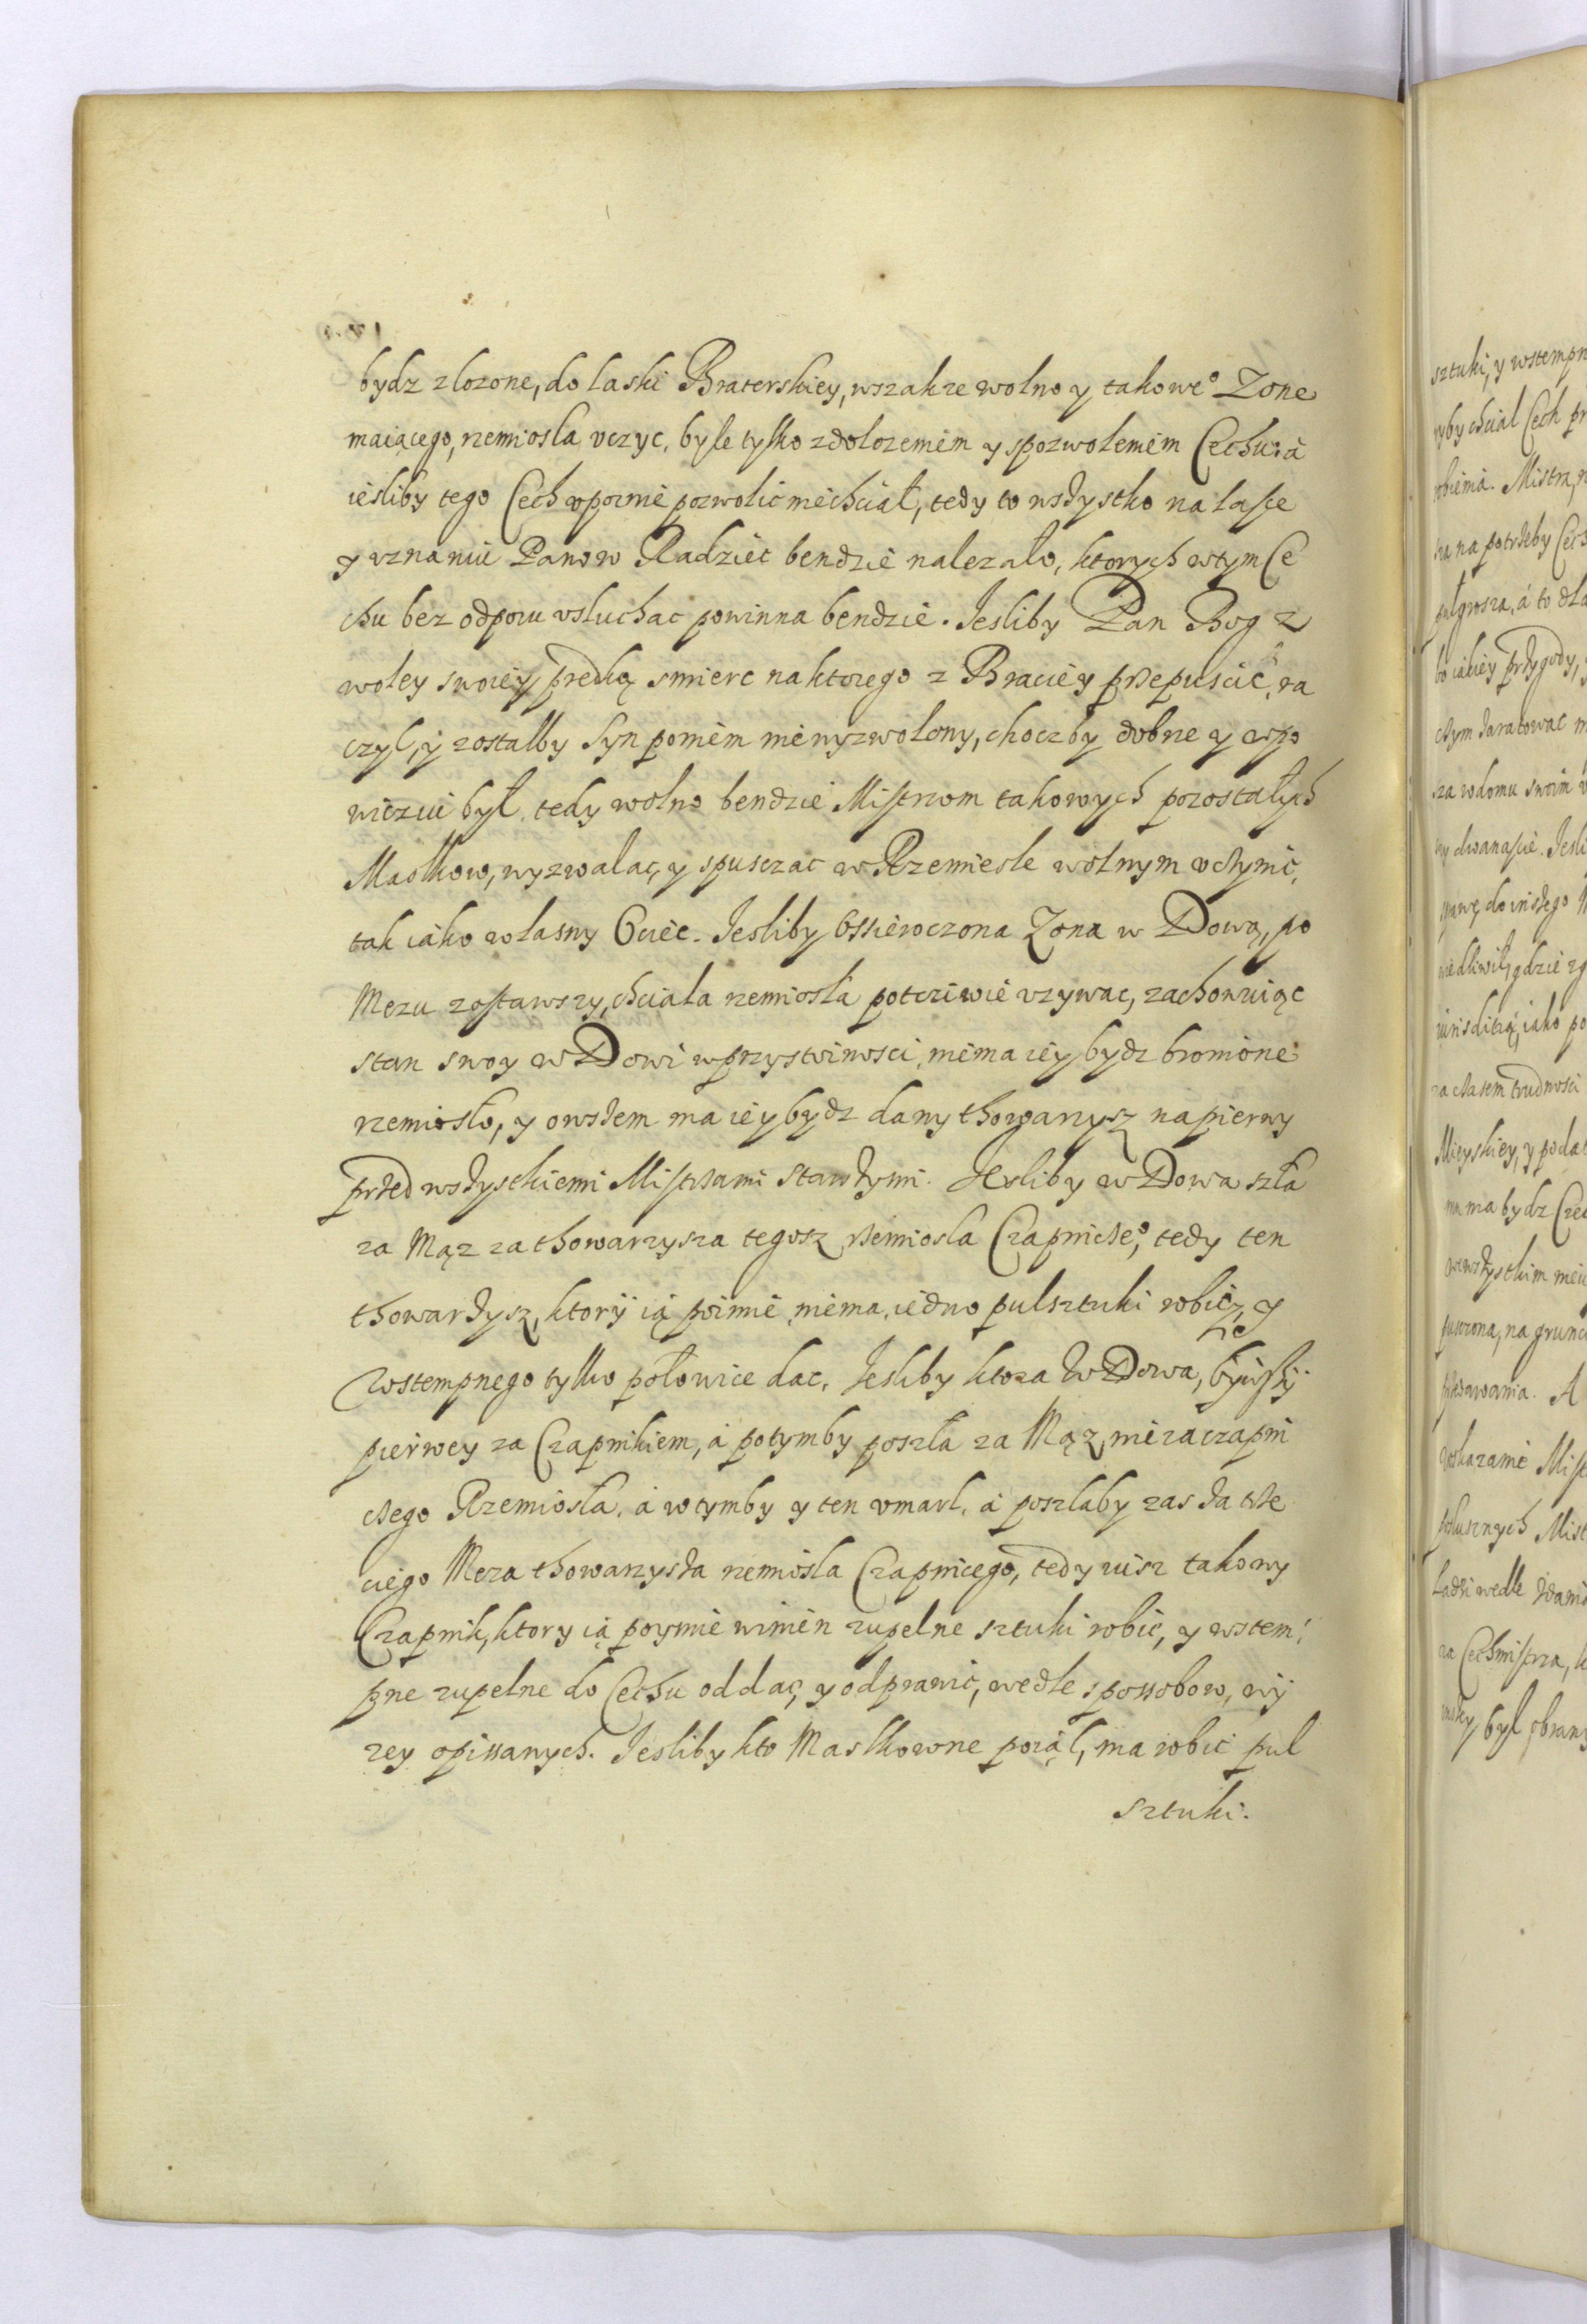 bydz zlozone, do laski Braterskiey, wszakze wolno y takoweº Zone
maiącego, rzemiosla vczyc, byle tylko zdolozeniem y spozwoleniem Cechu: á
iesliby tego Cech vpornie pozwolic niechciał, tedy to wszystko na lasce
y vznaniu Panow Radziec bendzie nalezało, ktorych wtym Ce
chu bez odporu vsluchac powinna bendzie. Jesliby Pan Bog z
woley swoiey prędką smierc naktorego z Braciey przepuscic, ra
czyl, ÿ zostalby Syn poniem niewyzwolony, choczby dobrze y wpo
wiczui był, tedy wolno bendzie Mistrzom takowych pozostałych
Mastkow, wyzwalac, y spusczac w Rzemiesle wolnym vczynic,
tak iako wlasny Ociec. Jesliby Ossieroczona Zona w Dową, po
Mezu zostawszy, chciala rzemiosla potcziwie vzywac, zachowuiąc
stan swoy w Dowi wprzystoinosci, niema iey bydz bronione
rzemiosło, y owszem ma iey bydz dany thowarzysz napierwy
przed wszystkiemi Mistrzami Starszymi. Jesliby w Dowa szła
za Mąz za thowarzysza tegosz rzemiosla Czapniczeº, tedy ten
thowarzysz, ktorÿ ią poimie niema, iedno pulsztuki robic, y
Wstempnego tylko połowice dac. Jesliby ktora W Dowa, bÿwszÿ
pierwey za Czapnikiem, á potymby poszła za Mąz, nie za czapni
czego Rzemiosła, á wtymby y ten vmarl, á poszlaby zas za trze
ciego Meza thowarzysza rzemiosla Czapnicego, tedy iusz takowy
Czapnik, ktory ią poymie winien zupelne sztuki robic, y wstem
pne zupelne do Cechu oddac, y odprawic, wedle spossobow, wÿ
zey opissanych. Jesliby kto Mastkowne poiął, ma robic pul
sztuki.